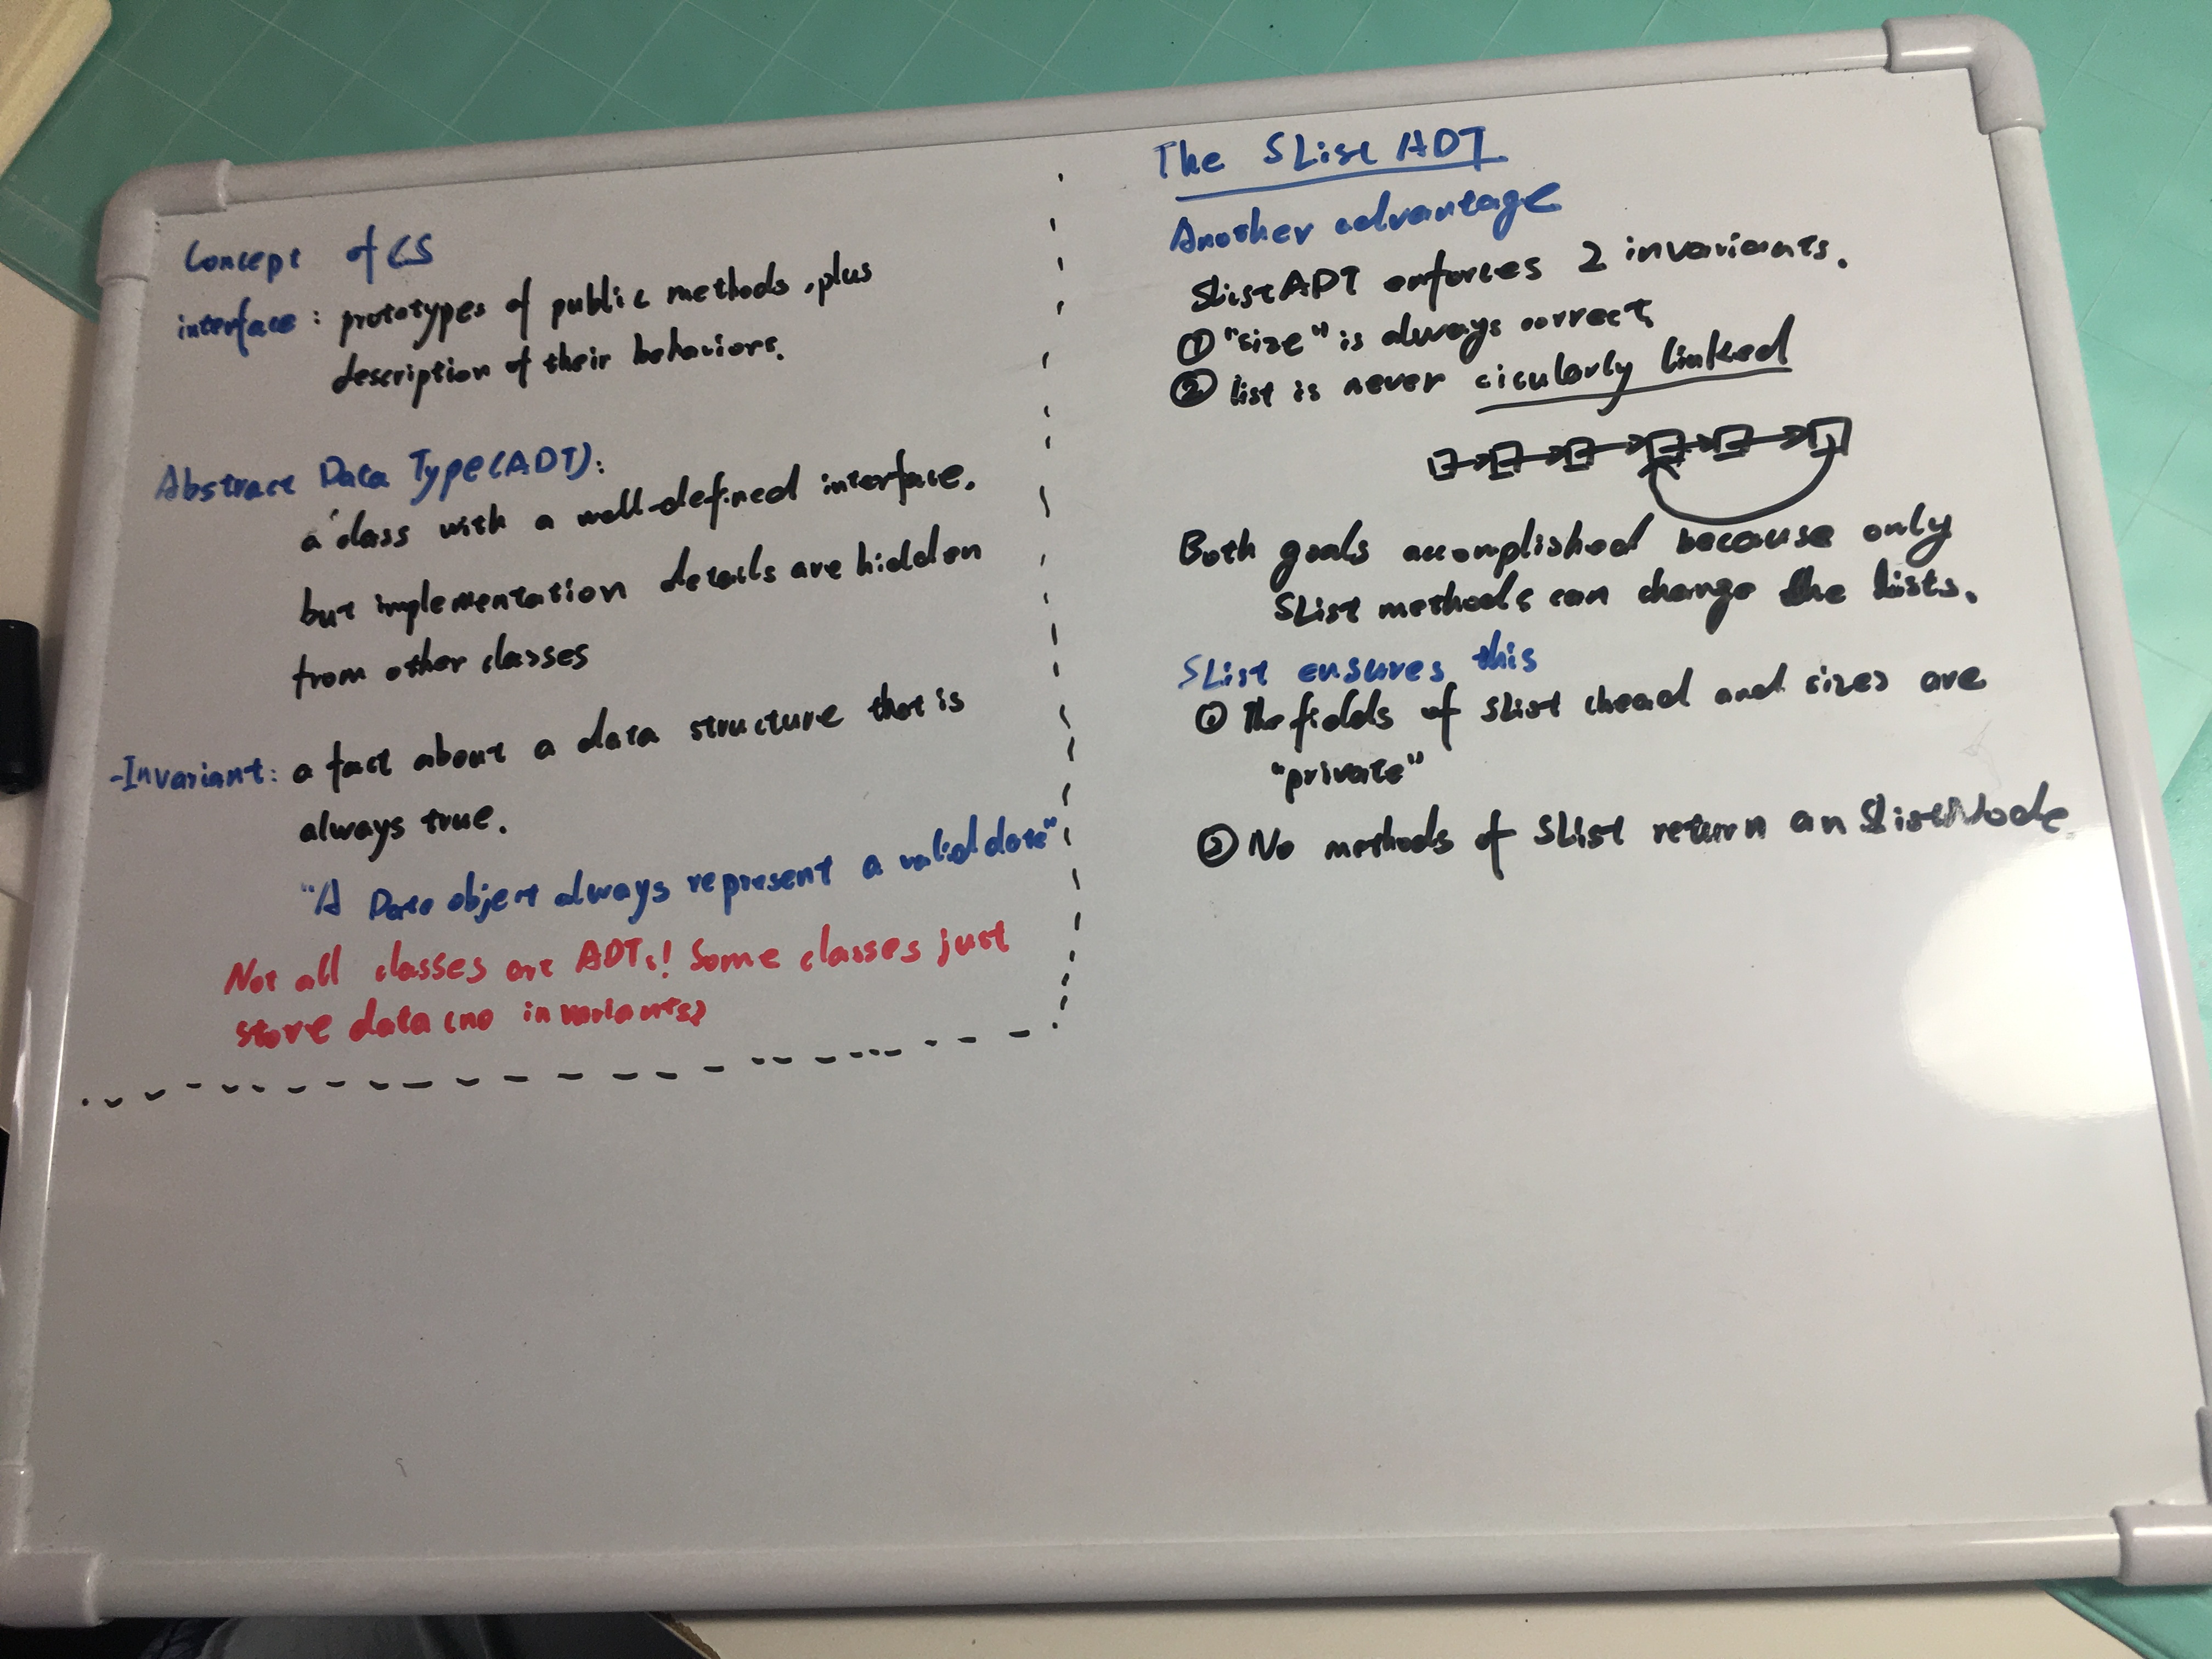 Concept of CS
interface: prototypes of public methods, plus
description of their behaviors.
Abstract Data Type(ADT):
a class with a well-defined interface.
but implementation details are hidden
from other classes
-Invariant: a fact about a data structure that is
always true.
"A Date object always represent a valid date"
Not all classes are ADTs! Some classes just
store data (no invariants)
The SList ADT
Another advantage
SList ADT enforces 2 invariants.
① "size" is always correct
② list is never cicularly linked
Both goals accomplished because only
SList methods can change the lists.
SList ensures this
① The fields of SList (head and size) are
"private"
② No methods of SList return an SListNode